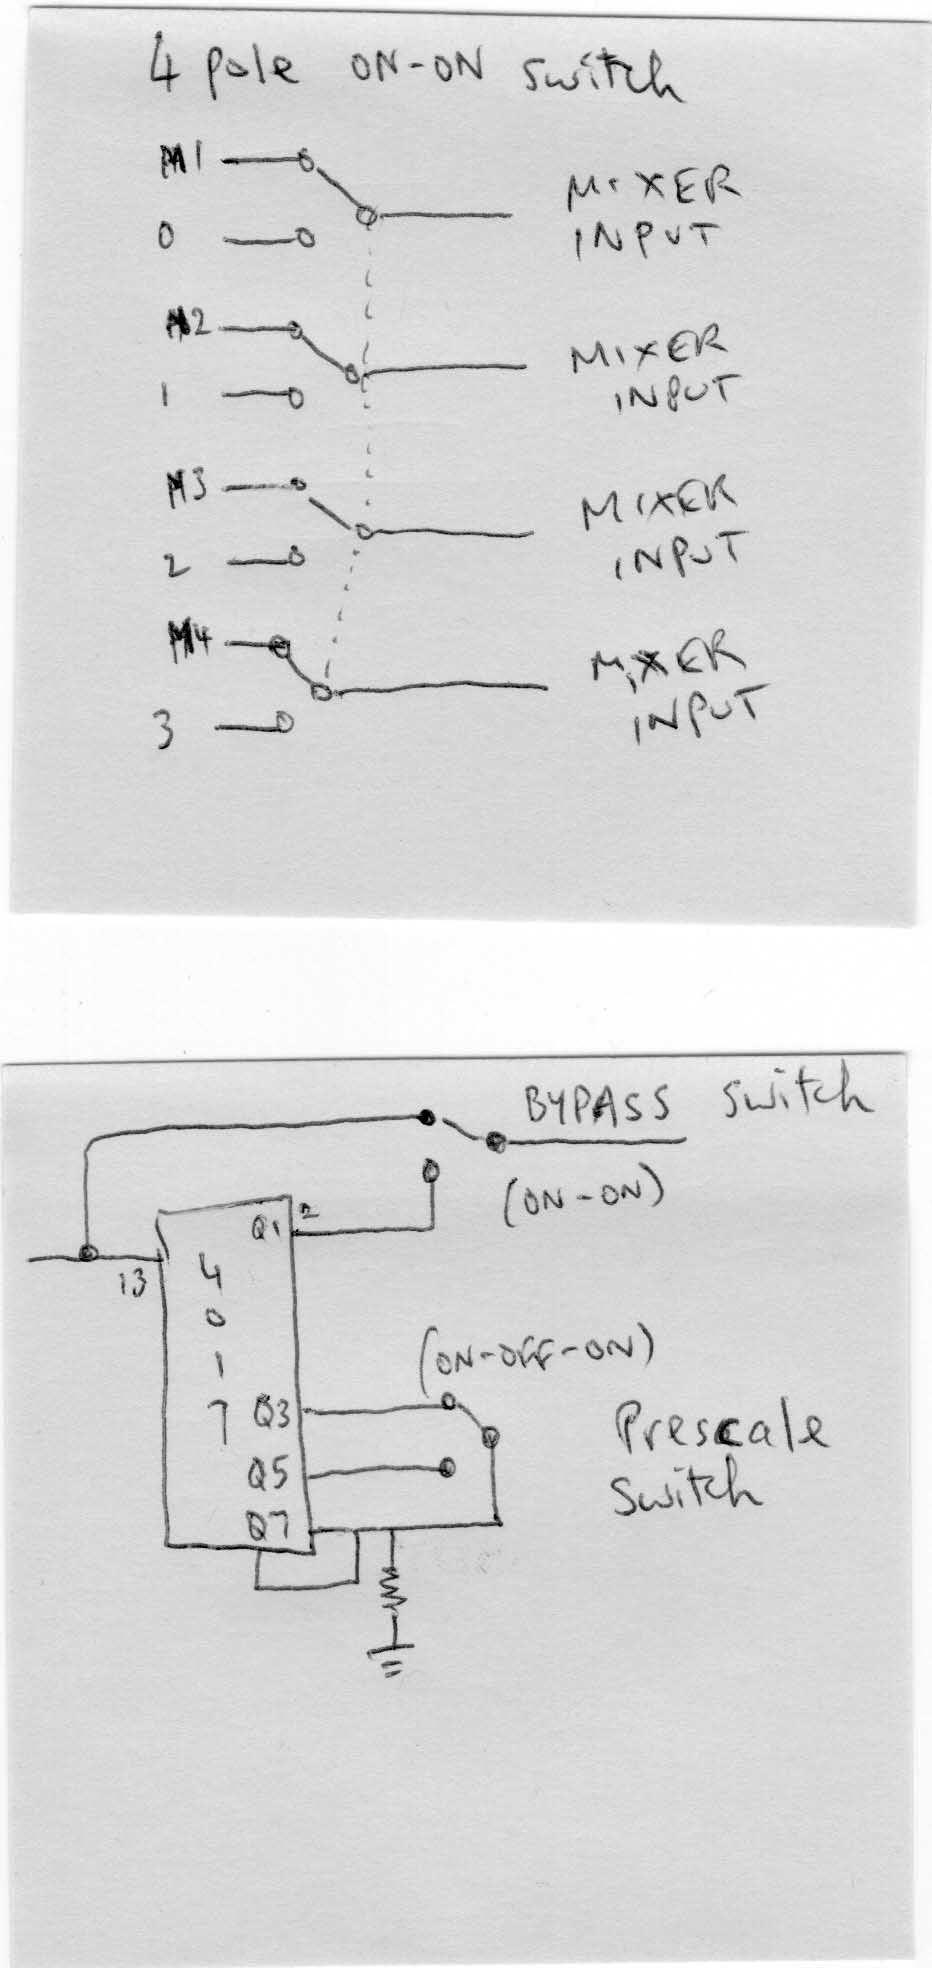 4 pole ON-ON switch
M1
MIXER
INPUT
0
M2
MIXER
INPUT
1
M3
MIXER
INPUT
2
M4
MIXER
INPUT
3
BYPASS switch
(ON-ON)
Q1 2
13
4
0
1
7
(ON-OFF-ON)
Q3
Prescale
switch
Q5
Q7